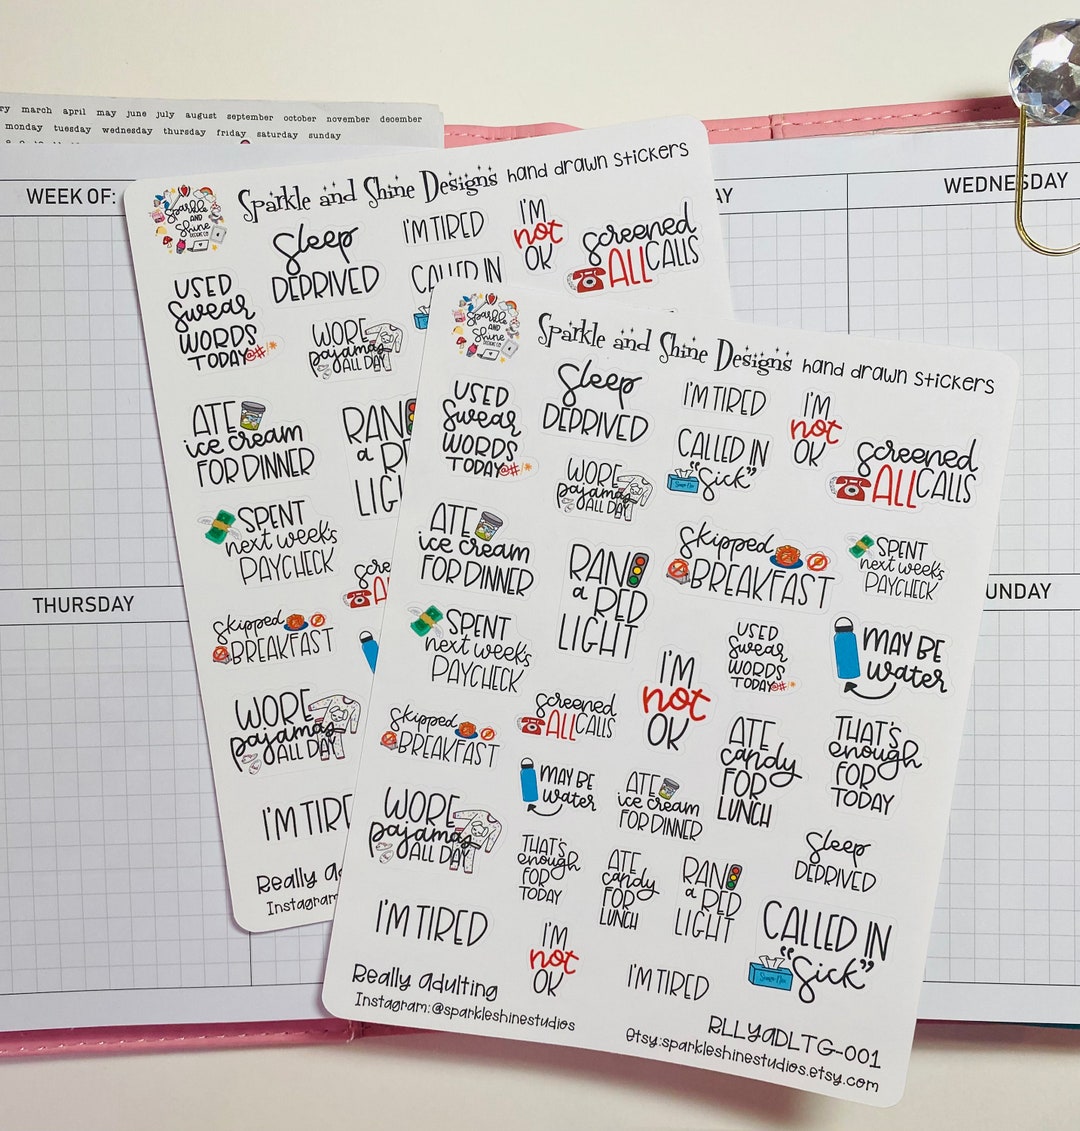 march april may june july august september october november december
monday tuesday wednesday thursday friday saturday sunday
WEEK OF:
WEDNESDAY
THURSDAY
Sparkle
AND
Shine
DESIGN CO
Sparkle and Shine Designs hand drawn stickers
USED
Swear
WORDS
TODAY@#/*
Sleep
DEPRIVED
I'M TIRED
I'M
not
OK
screened
ALL CALLS
CALLED IN
WORE
pajamas
ALL DAY
ATE
ice cream
FOR DINNER
RAN
a RED
LIGHT
SPENT
next week's
PAYCHECK
skipped
BREAKFAST
WORE
pajamas
ALL DAY
I'M TIRED
Instagram
Sparkle
AND
Shine
DESIGN CO
Sparkle and Shine Designs hand drawn stickers
USED
Swear
WORDS
TODAY@#/*
Sleep
DEPRIVED
I'M TIRED
I'M
not
OK
screened
ALL CALLS
CALLED IN
"Sick"
WORE
pajamas
ALL DAY
ATE
ice cream
FOR DINNER
RAN
a RED
LIGHT
skipped
BREAKFAST
SPENT
next week's
PAYCHECK
SPENT
next week's
PAYCHECK
I'M
not
OK
USED
Swear
WORDS
TODAY@#/*
MAY BE
water
skipped
BREAKFAST
screened
ALL CALLS
ATE
candy
FOR
LUNCH
THAT'S
enough
FOR
TODAY
WORE
pajamas
ALL DAY
MAY BE
water
ATE
ice cream
FOR DINNER
THAT'S
enough
FOR
TODAY
ATE
candy
FOR
LUNCH
RAN
a RED
LIGHT
Sleep
DEPRIVED
I'M TIRED
I'M
not
OK
I'M TIRED
CALLED IN
"Sick"
Really Adulting
Instagram:@sparkleshinestudios
RLLYADLTG-001
Etsy:sparkleshinestudios.etsy.com